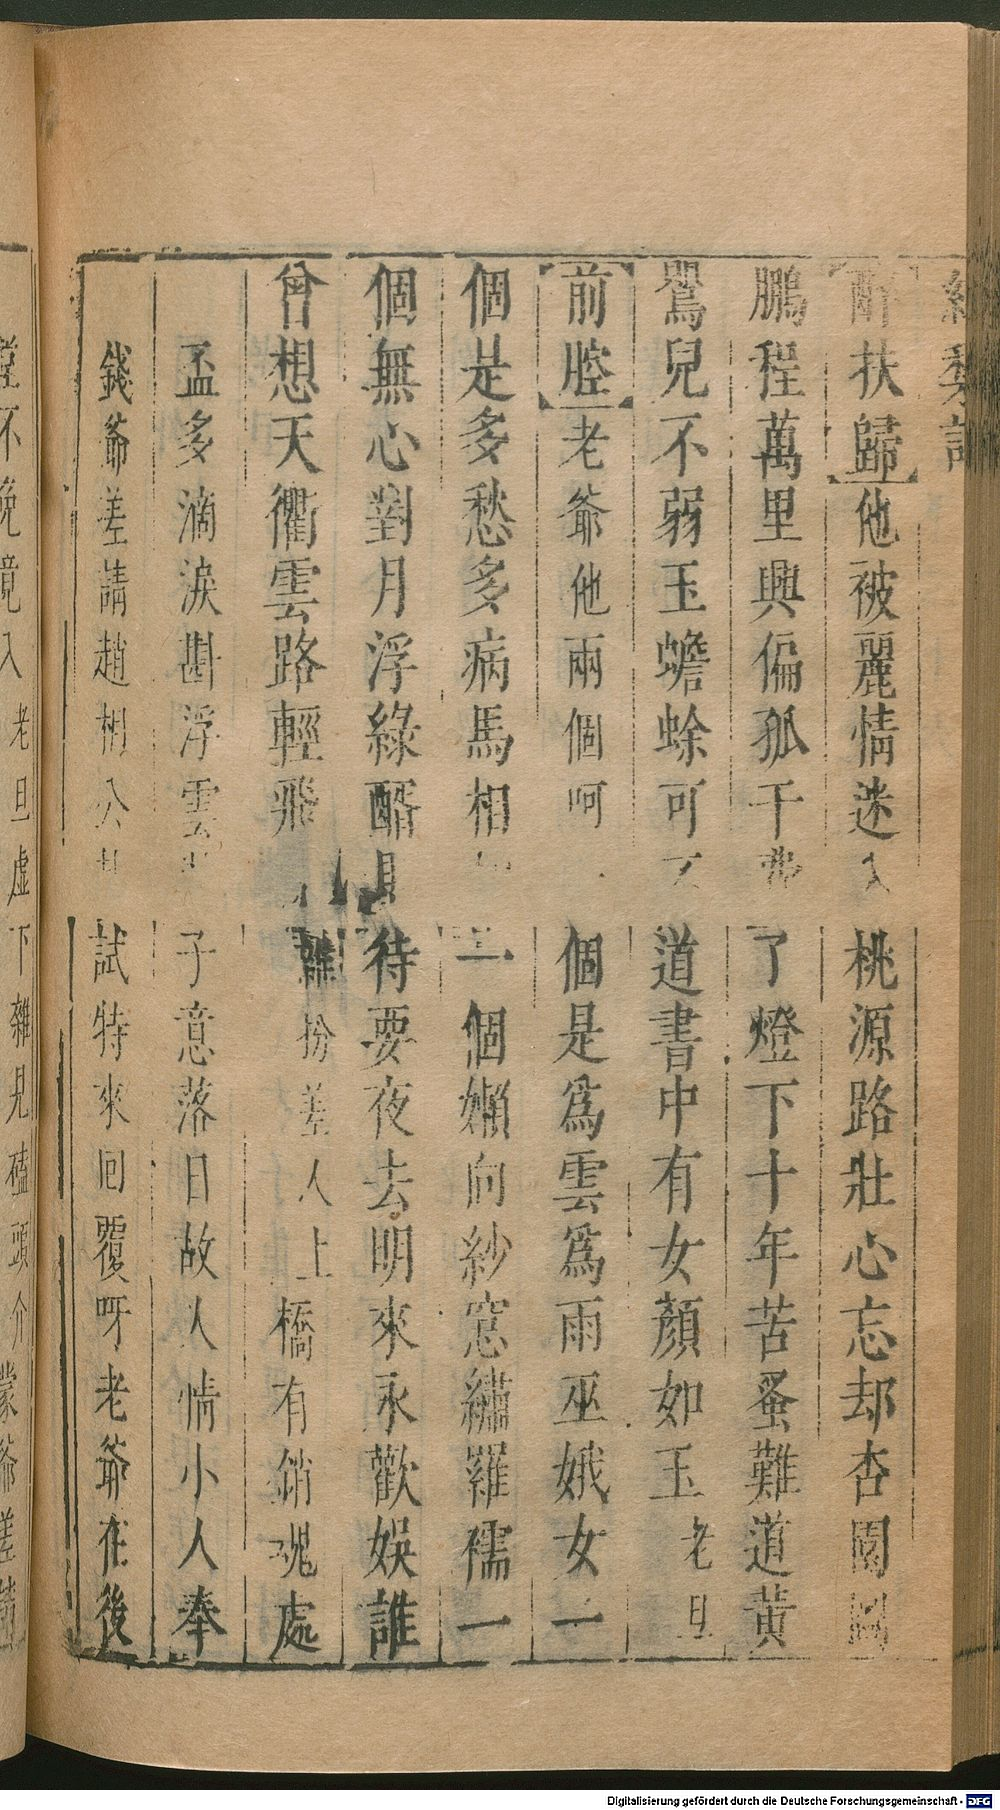 醉扶歸他被麗情迷入桃源路壯心忘却杏園圖
鵬程萬里興偏孤干費了燈下十年苦蚤難道黃
鸎兒不弱玉蟾蜍可不道書中有女顏如玉老旦
前腔老爺他兩個呵一個是爲雲爲雨巫娥女一
個是多愁多病馬相如一個嬾向紗窓繡羅襦一
個無心對月浮綠醑且待要夜去明來永歡娛誰
曾想天衢雲路輕飛雜扮差人上橋有銷魂處
盃多滴淚斟浮雲子意落日故人情小人奉
錢爺差請趙相公試特來回覆呀老爺在後
堂不免竟入老旦虛下雜見磕頭介蒙爺差請
Digitalisierung gefördert durch die Deutsche Forschungsgemeinschaft - DFG